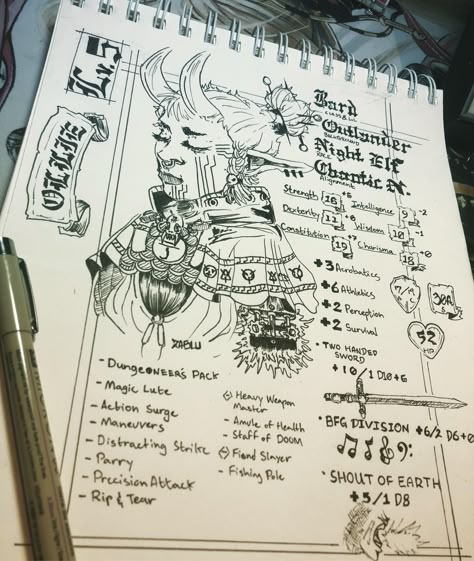 Lv.5
OLLIE
Bard
CLASS & LVL
Outlander
BACKGROUND
Night Elf
RACE
Chaotic N.
Alignment
Strength 16 +6 Intelligence 9 -2
Dexterity 11 +6 Wisdom 10 -1
Constitution 19 +7 Charisma 18 +0
+3 Acrobatics
+6 Athletics
+2 Perception
+2 Survival
AC
30ft
52
HP
• TWO HANDED
SWORD
+10/1D10+6
• BFG DIVISION +6/2 D6+0
• SHOUT OF EARTH
+5/1 D8
ZABLU
- DUNGEONEER'S PACK
- Magic Lute
- Action Surge
- Maneuvers
- Distracting Strike
- Parry
- Precision Attack
- Rip & Tear
Heavy Weapon
Master
- Amule of Health
- Staff of DOOM
Fiend Slayer
- Fishing Pole